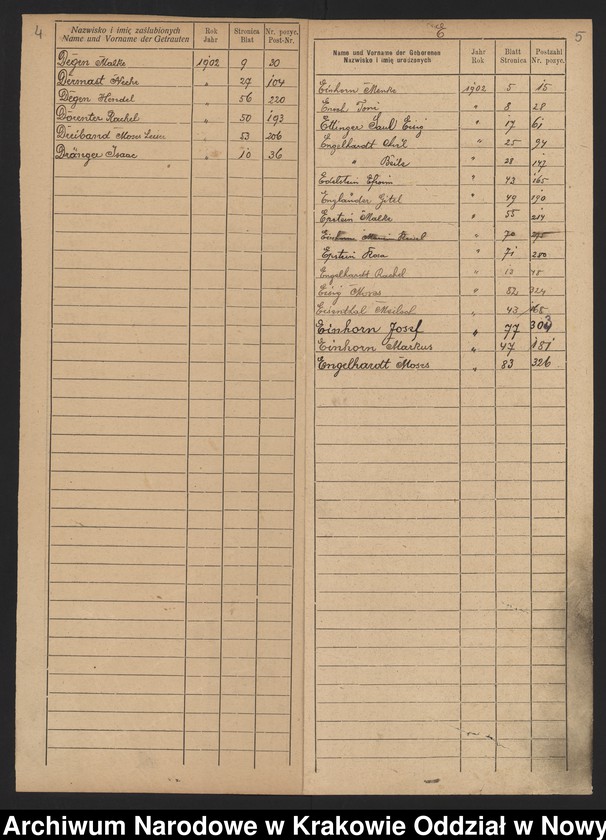 4
Nazwisko i imię zaślubionych
Name und Vorname der Getrauten
Rok
Jahr
Stronica
Blatt
Nr. pozyc.
Post-Nr.
Degen Malke 1902 9 30
Dermast " 27 104
Degen Hendel " 56 220
Dorenter Rachel " 50 193
Dreiband Moses " 53 206
Dränger Isaac " 10 36
5
Name und Vorname der Geborenen
Nazwisko i imię urodzonych
Jahr
Rok
Blatt
Stronica
Postzahl
Nr. pozyc.
Einhorn 1902 5 15
Toni " 8 28
Ettinger Saul Essig " 17 61
Engelhardt " 25 94
" Beile " 28 147
Edelstein Efroim " 43 165
Engländer Gitel " 49 190
Epstein Malke " 55 214
" 70
Epstein Rosa " 71 280
Engelhardt Rachel " 13 48
Essig Moses " 82 324
Eisenthal Meilech " 43 168
Einhorn Josef " 77 303
Einhorn Markus " 47 181
Engelhardt Moses " 83 326
Archiwum Narodowe w Krakowie Oddział w Nowy